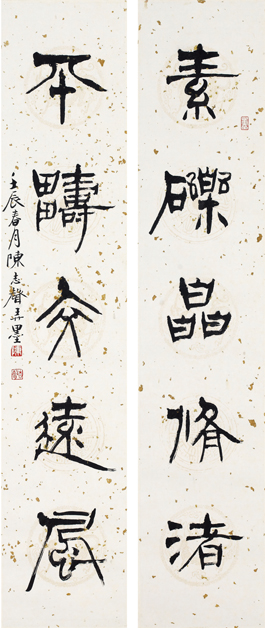 素礫皛脩渚
平疇交遠風
壬辰春月陳志聲弄墨